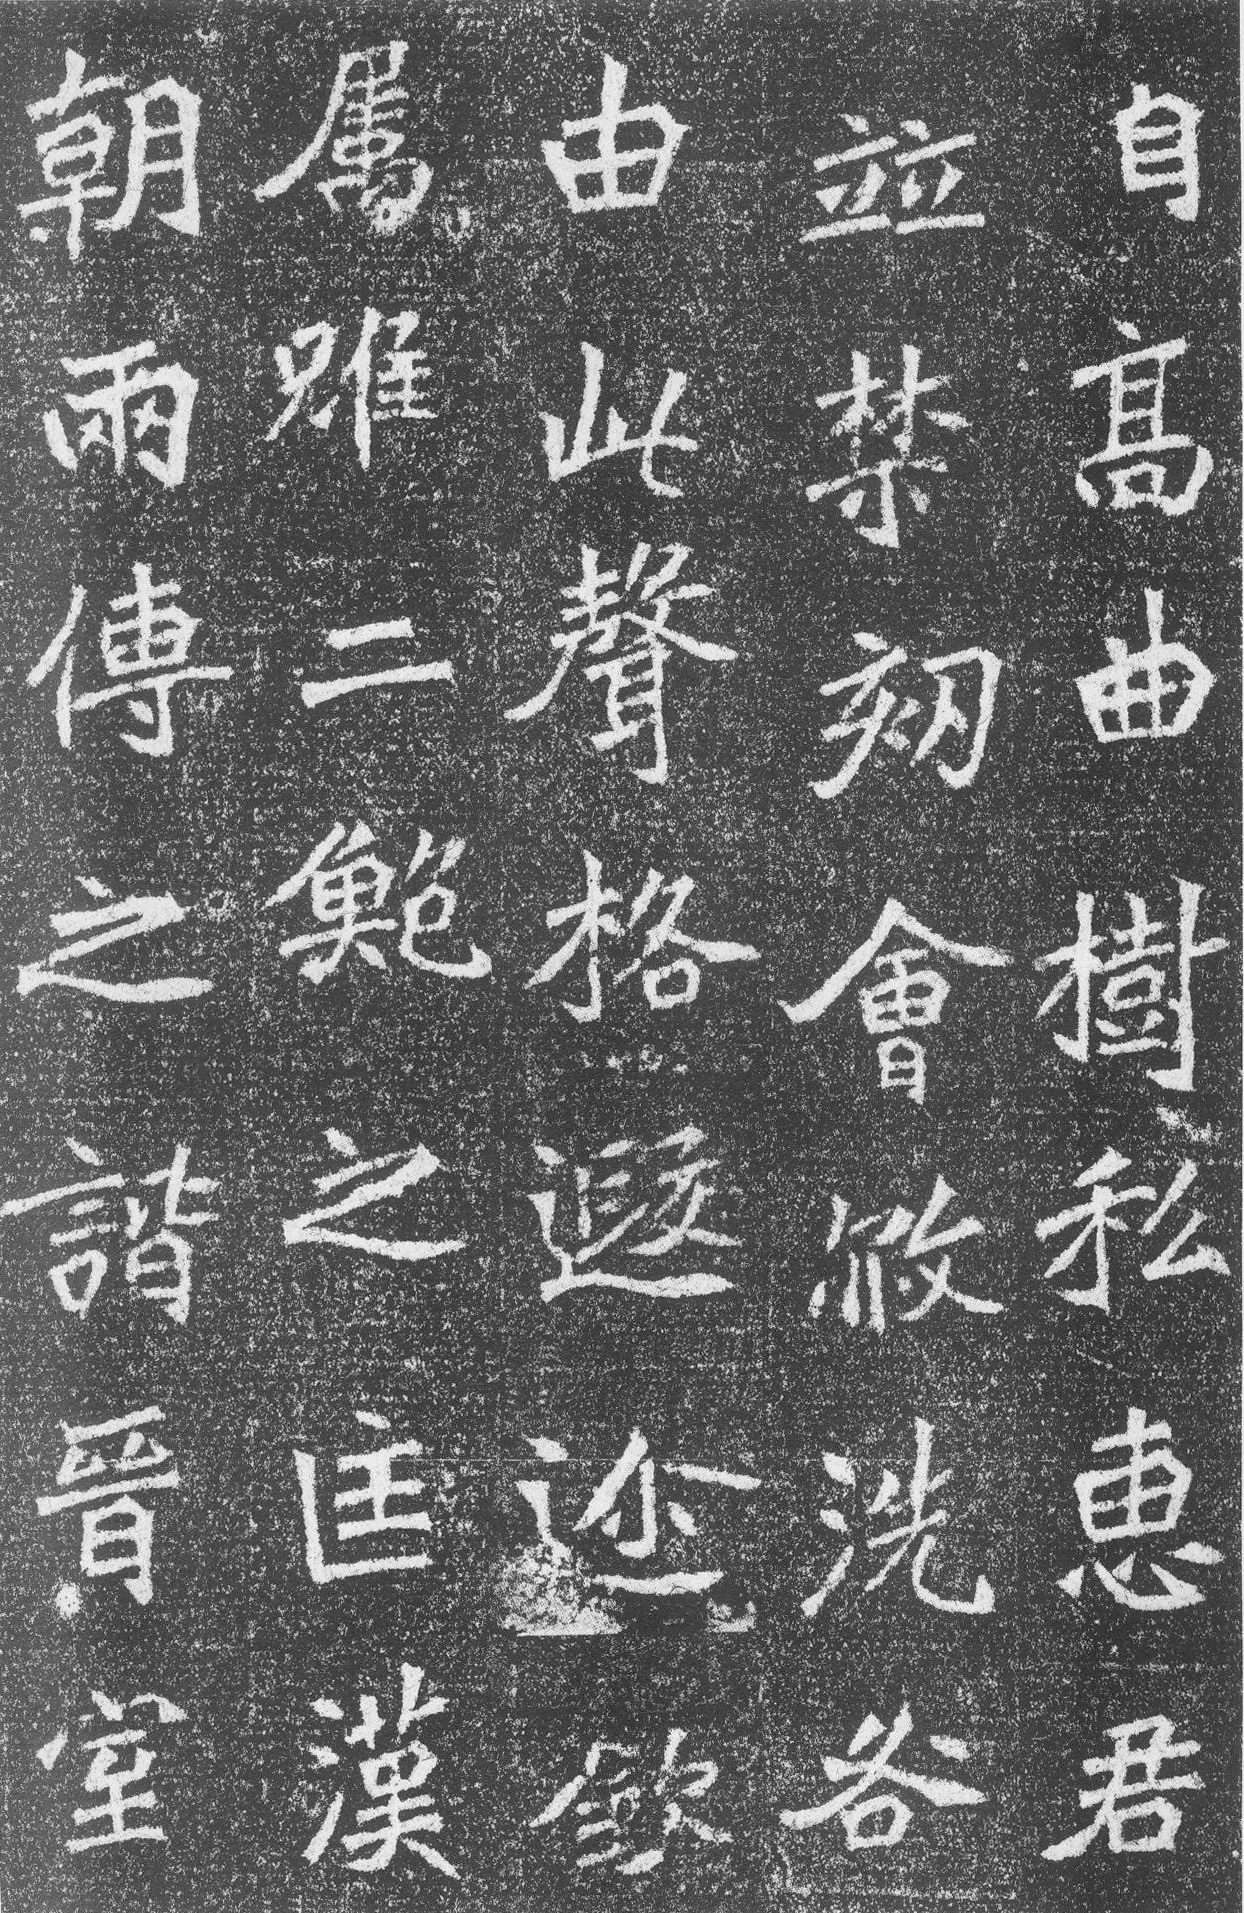 自高曲樹私惠君
並禁劾會攸洗各
由此聲格遐迩欽
属雖二鮑之匡漢
朝兩傅之諧晉室